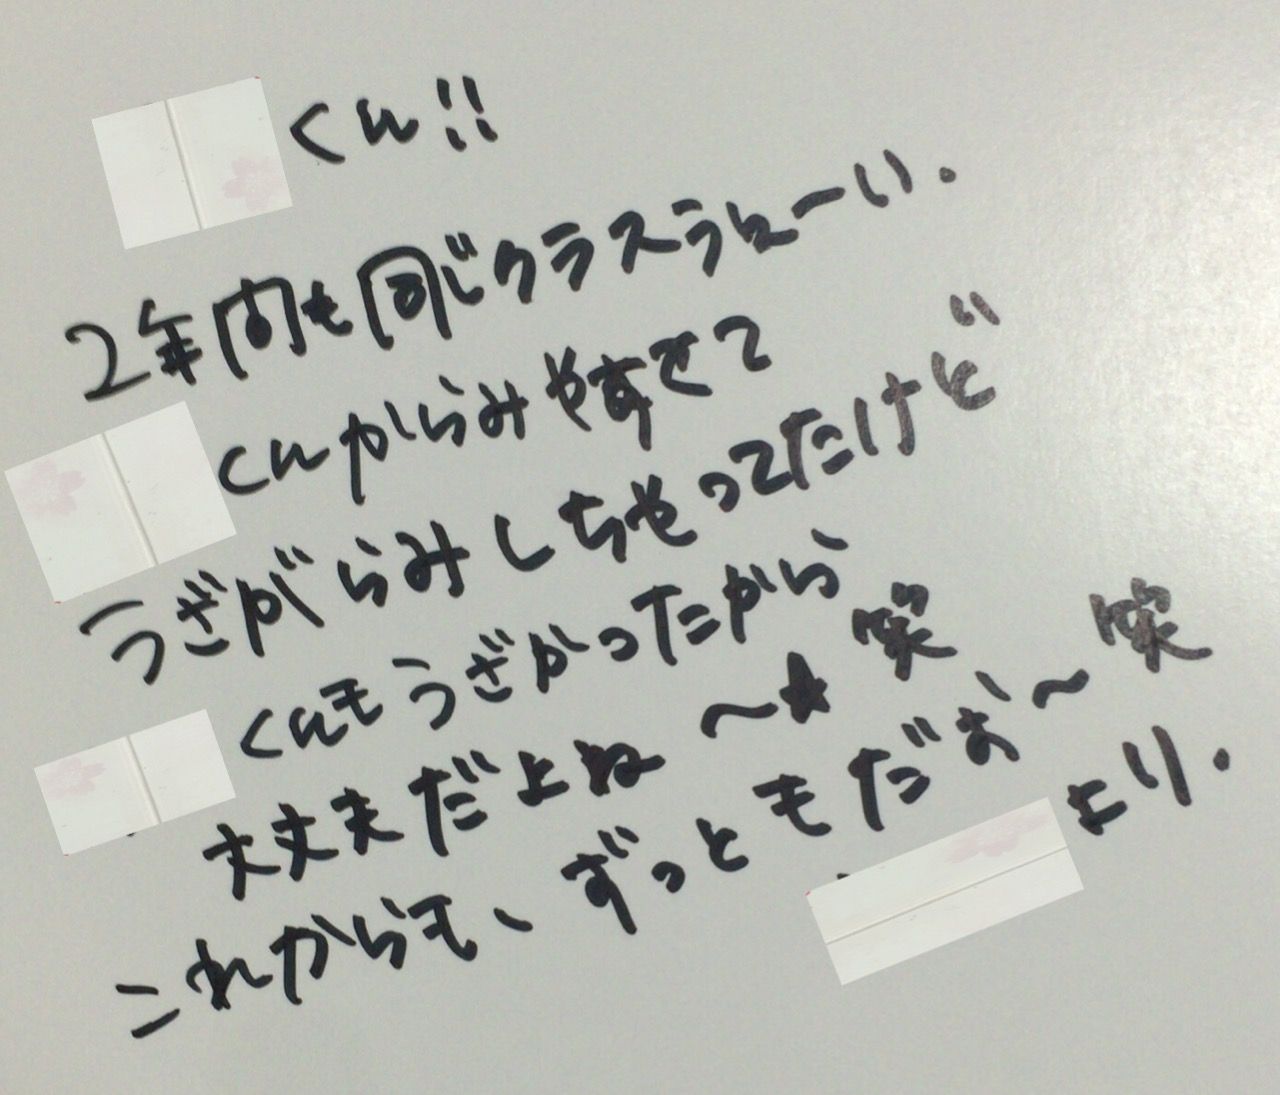 くん!!
2年間も同じクラスうぇーい.
くんからみやすせて
うざがらみしちゃってたけど
くんもうざかったから
大丈夫だよね〜★笑
これからも、ずっともだお〜笑
より.